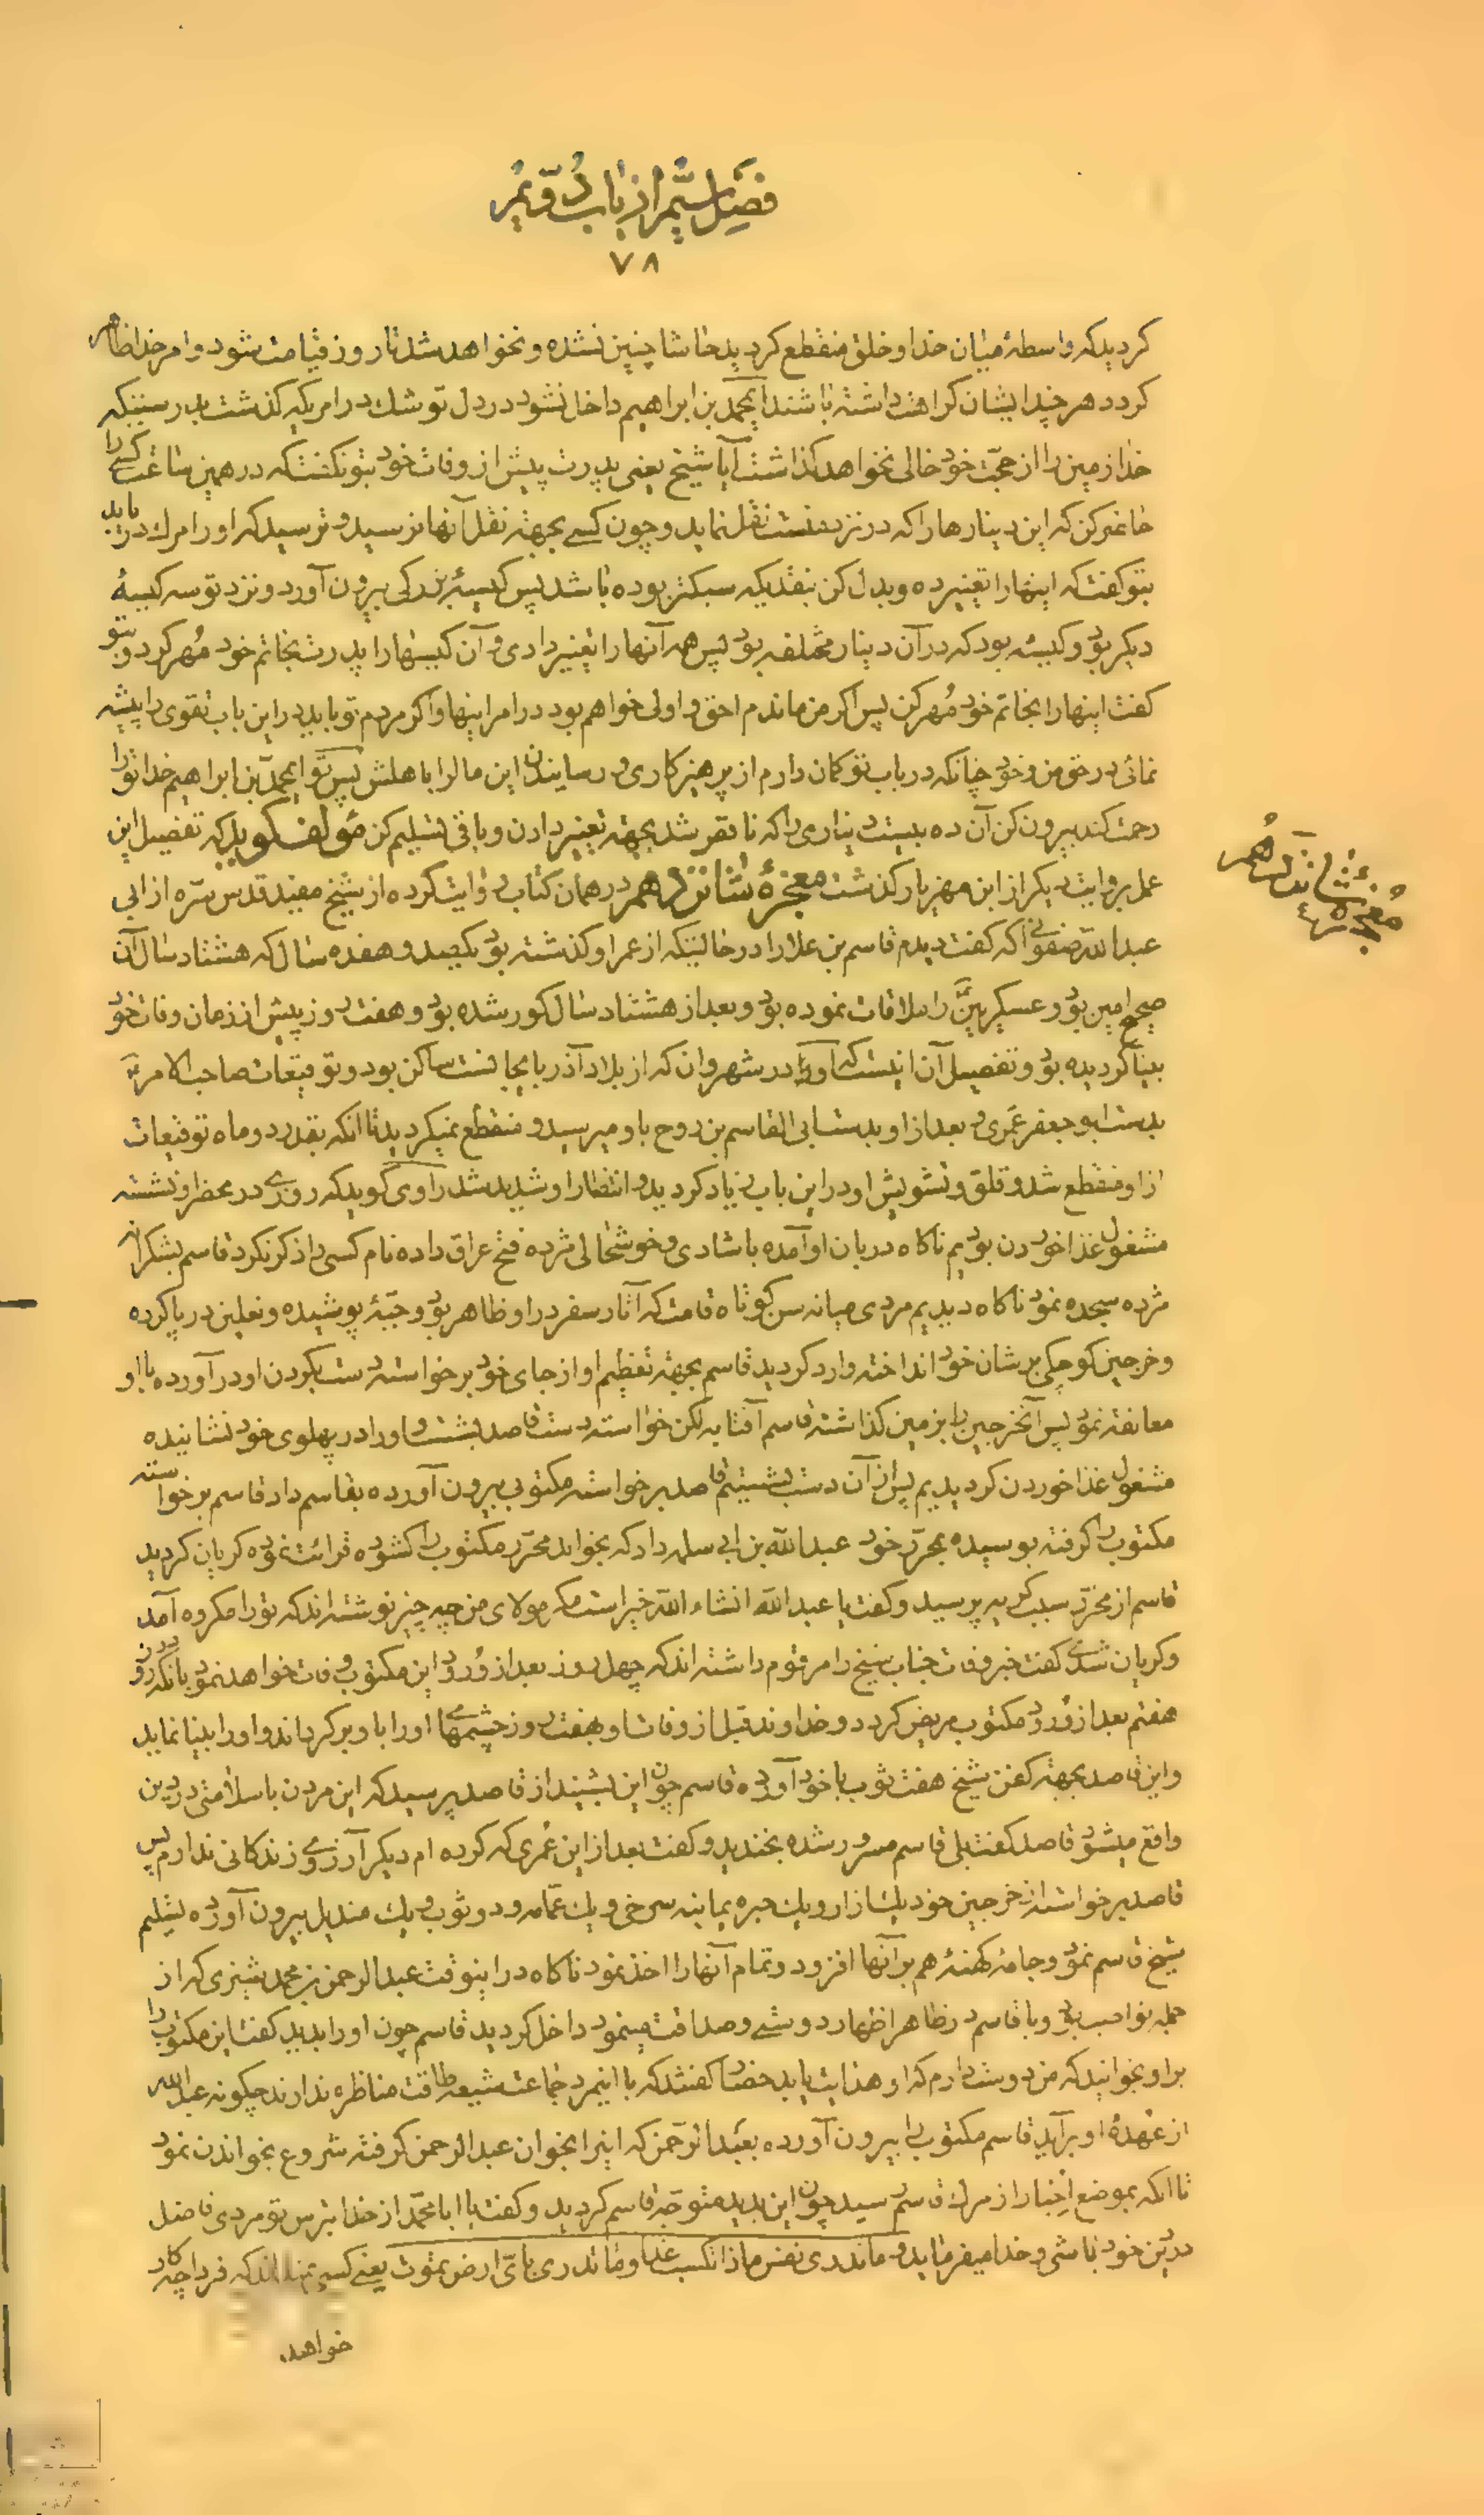 فصل ششم از باب دویم
۷۸
گردید که واسطهٔ میان خدا و خلق منقطع گردید حاشا چنین نشده و نخواهد شد تا روز قیامت شود و امر خدا ظاهر
گردد هر چند ایشان کراهت داشته باشند ای محمد بن ابراهیم داخل نشود در دل تو شک در امریکه گذشت بدرستیکه
خدا زمین را از حجت خود خالی نخواهد گذاشت آیا شیخ یعنی پدرت پیش از وفات خود بتو نگفت که در همین ساعت کسی را
حاضر کن که این دینارها را که در نزد منست نقل نماید و چون کسی بجهة نقل آنها نرسید و ترسید که او را مرک دریابد
بتو گفت که اینها را تغییر ده و بدل کن بنقدیکه سبکتر بوده باشد پس کیسهٔ بزرکی بیرون آورد و نزد تو سه کیسهٔ
دیکر بود و کیسهٔ بود که در آن دینار مختلفه بود پس همه آنها را تغییر دادی و آن کیسها را پدرت بخاتم خود مُهر کرد و بتو
گفت اینها را بخاتم خود مُهر کن پس اکر من ماندم احق و اولی خواهم بود در امر اینها و اکر مردم تو باید در این باب تقوی را پیشه
نمائی در حق من و خود چنانکه در باب تو کمان دارم از پرهیزکاری و رسانیدن این مال را باهلش پس تو ای محمد بن ابراهیم خدا تو را
رحمت کند بیرون کن آن ده بیست دیناری را که ناقص شد بجهة تغییر دادن و باقی تسلیم کن مؤلف کوید که تفصیل این
عمل بروایت دیکر از ابن مهزیار گذشت معجزهٔ شانزدهم در همان کتاب روایت کرده از شیخ مفید قدس سره از ابی
عبدالله صفوانی که گفت دیدم قاسم بن علا را در حالتیکه از عمر او گذشته بود یکصد و هفده سال که هشتاد سال آن
صحیح العین بود و عسکریین را ملاقات نموده بود و بعد از هشتاد سال کور شده بود و هفت روز پیش از زمان وفات خود
بینا گردیده بود و تفصیل آن اینست که او در شهر وان که از بلاد آذربایجانست ساکن بود و توقیعات صاحب الامر
بدست ابو جعفر عَمری و بعد از او بدست ابی القاسم بن روح باو میرسید و منقطع نمیکردید تا آنکه بقدر دو ماه توقیعات
از او منقطع شد و قلق و تشویش او در این باب زیاد گردید و انتظار او شدید شد راوی گوید که روزی در محضر او نشسته
مشغول غذا خوردن بودیم ناگاه دربان او آمده با شادی و خوشحالی مژده فتح عراق داده نام کسی را ذکر نکرد قاسم بشکرانه
مژده سجده نمود ناگاه دیدیم مردی میانه سن کوتاه قامت که آثار سفر در او ظاهر بود و جبهٔ پوشیده و نعلین در پا کرده
و خرجین کوچکی بر شان خود انداخته وارد گردید قاسم بجهة تعظیم او از جای خود برخواسته دست بکردن او درآورده با او
معانقه نمود پس آنخرجین را بر زمین گذاشته قاسم آفتابه لکن خواسته دست قاصد بشست و او را در پهلوی خود نشانیده
مشغول غذا خوردن گردیدیم پس از آن دست بشستیم قاصد برخواسته مکتوبی بیرون آورده بقاسم داد قاسم برخواسته
مکتوب را گرفته بوسیده بمحرر خود عبدالله بن ابی سلمه داد که بخواند محرر مکتوب را کشوده قرائت نموده کریان گردید
قاسم از محرر سبب گریه پرسید و گفت یا عبدالله انشاء الله خیر است مکر مولای من چه چیز نوشته اند که تو را مکروه آمد
و کریان شدی گفت خبر وفات جناب شیخ را مرقوم داشته اند که چهل روز بعد از ورود این مکتوب وفات خواهد نمود بآنکه در روز
هفتم بعد از ورود مکتوب مریض گردد و خداوند قبل از وفات او بهفت روز چشمهای او را باو برگرداند و او را بینا نماید
و این قاصد بجهة کفن شیخ هفت ثوب با خود آورده قاسم چون این بشنید از قاصد پرسید که این مردن با سلامتی در دین
واقع میشود قاصد گفت بلی قاسم مسرور شده بخندید و گفت بعد از این عُمری که کرده ام دیکر آرزوی زندکانی ندارم پس
قاصد برخواسته از خرجین خود یک ازار و یک حبره یمانیه سرخی و یک عمامه و دو ثوب و یک مندیل بیرون آورده تسلیم
شیخ قاسم نمود و جامهٔ کهنهٔ هم بر آنها افزود و تمام آنها را اخذ نمود ناگاه در اینوقت عبدالرحمن بن محمد شیزی که از
جمله نواصب بود و با قاسم در ظاهر اظهار دوستی و صداقت مینمود داخل گردید قاسم چون او را بدید گفت این مکتوب را
بر او بخوانید که من دوست دارم که او هدایت یابد حضّار گفتند که با اینمرد جماعت شیعه طاقت مناظره ندارند چگونه عبدالله
از عُهدهٔ او برآید قاسم مکتوب را بیرون آورده بعبدالرحمن که اینرا بخوان عبدالرحمن گرفته شروع بخواندن نمود
تا آنکه بموضع اخبار از مرک قاسم رسید چون این بدید متوجه قاسم گردید و گفت یا ابا محمد از خدا بترس تو مردی فاضل
در دین خود باشی و خدا میفرماید و ما تدری نفس ماذا تکسب غداً و ما تدری نفس بأیّ ارض تموت یعنی کسی نمیداند که فردا چه کار
خواهد
معجزهٔ شانزدهم